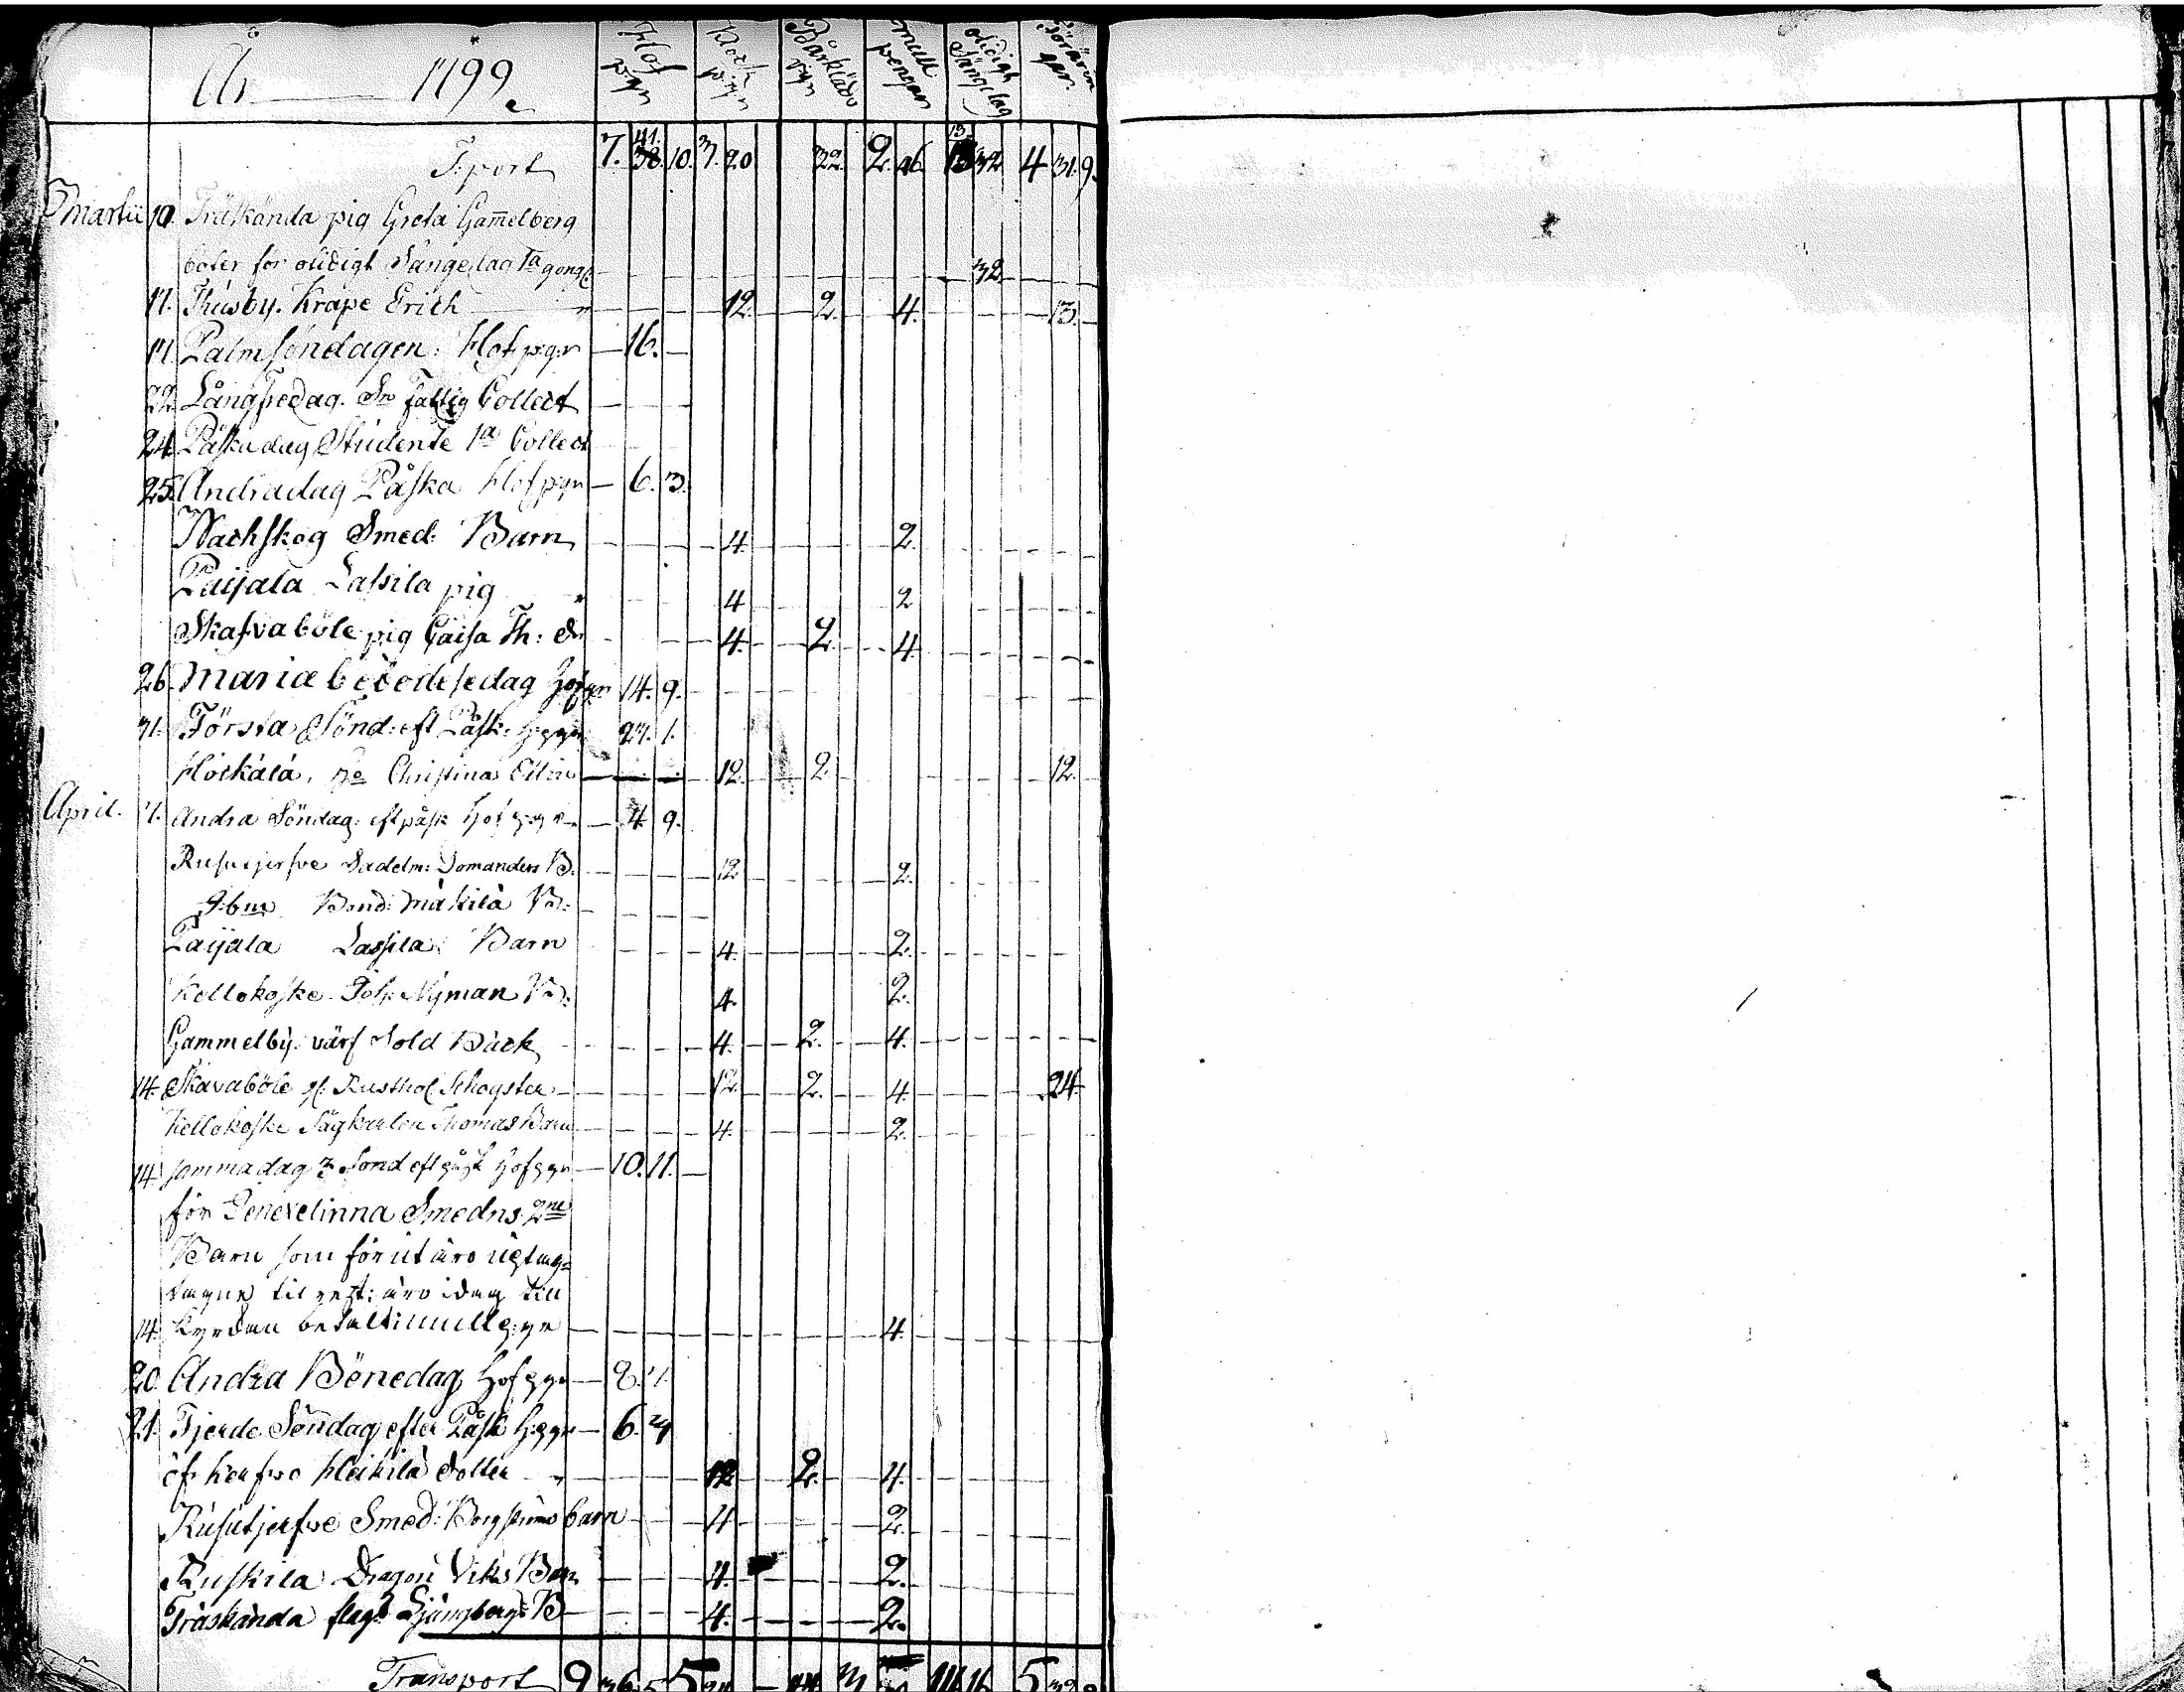 Åhr 1799
Hof pgn Klock pgn Bårkläds pgn mull pengar olidigt Sängelag Förärin gar
Tport 7. 41. 38. 10. 3. 20 32. 2. 26. 13. 32 4 31. 9.
Martii 10. Träskända pig Greta Gam̄elberg
böter för olidigt Sängelag 1a gong 32.
17. Thusby. Krape Erich 12. 2. 4. 13.
17. Palmsöndagen. Hof pgn 16.
22. Långfredag. Fattig Collect
24. Påska dag Studente 1a Collect
25. Andradag Påska Hof pgn 6. 3.
Nackskog Smed: Barn 4. 2.
Paijala Lassila pig 4 2
Skafvaböle pig Caisa Th: dr 4. 2. 4.
26. Mariæ bebodelsedag Hofpgn 14. 9.
31. Första Sönd: eft Påsk: H:pgn 27. 1.
Hotkala, Christina 12. 2. 12.
April. 7. Andra Söndag: eft påsk Hof pgn 4. 9.
Rusutjerfve Sadelm: Somanders B: 12 2.
Bond: Mäkilä B:
Paijala Lassila Barn 4. 2.
Kellokoske Joh: Nyman B: 4. 2.
Gammelby. värf Sold Bäck 4. 2. 4.
14. Skavaböle gl: Rusthol. Skogster 12. 2. 4. 24.
Kellokoske Sågkarlen Thomas Barn 4. 2.
14. samma dag 3 Sönd eft påsk Hof pgn 10. 11.
för Smedns 2ne
Barn som förut äro
til äro idag till
14. Kyrckan betalt mull pgn 4.
20. Andra Bönedag Hof pgn 8. 7.
21. Fjerde Söndag efter Påsk H:pgn 6. 4
Heikilä dotter 12. 2. 4.
Rusutjerfve Smed: Borgströms barn 4 2.
Ruskila Dragon Viks Barn 4. 2.
Träskända Ljungbergs B 4. 2.
Transport 9 36 5 5 24 44 3 14 16 5 32 9